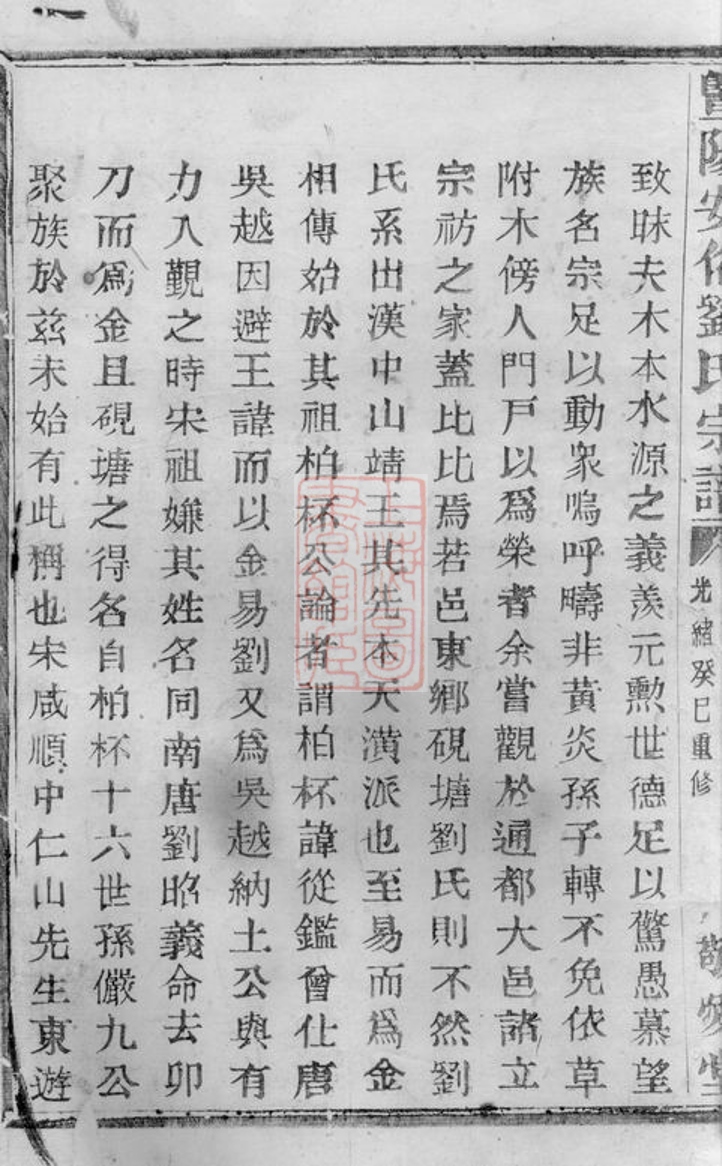 暨陽安俗劉氏宗譜
光緒癸巳重修
致昧夫木本水源之義羨元勲世德足以驚愚慕望
族名宗足以動衆嗚呼疇非黃炎孫子轉不免依草
附木傍人門戸以爲榮者余嘗觀於通都大邑諸立
宗祊之家蓋比比焉若邑東鄉硯塘劉氏則不然劉
氏系出漢中山靖王其先本天潢派也至易而爲金
相傳始於其祖柏杯公論者謂柏杯諱從鑑曾仕唐
吳越因避王諱而以金易劉又爲吳越納土公與有
力入覲之時宋祖嫌其姓名同南唐劉昭義命去卯
刀而爲金且硯塘之得名自柏杯十六世孫儼九公
聚族於茲未始有此稱也宋咸順中仁山先生東遊